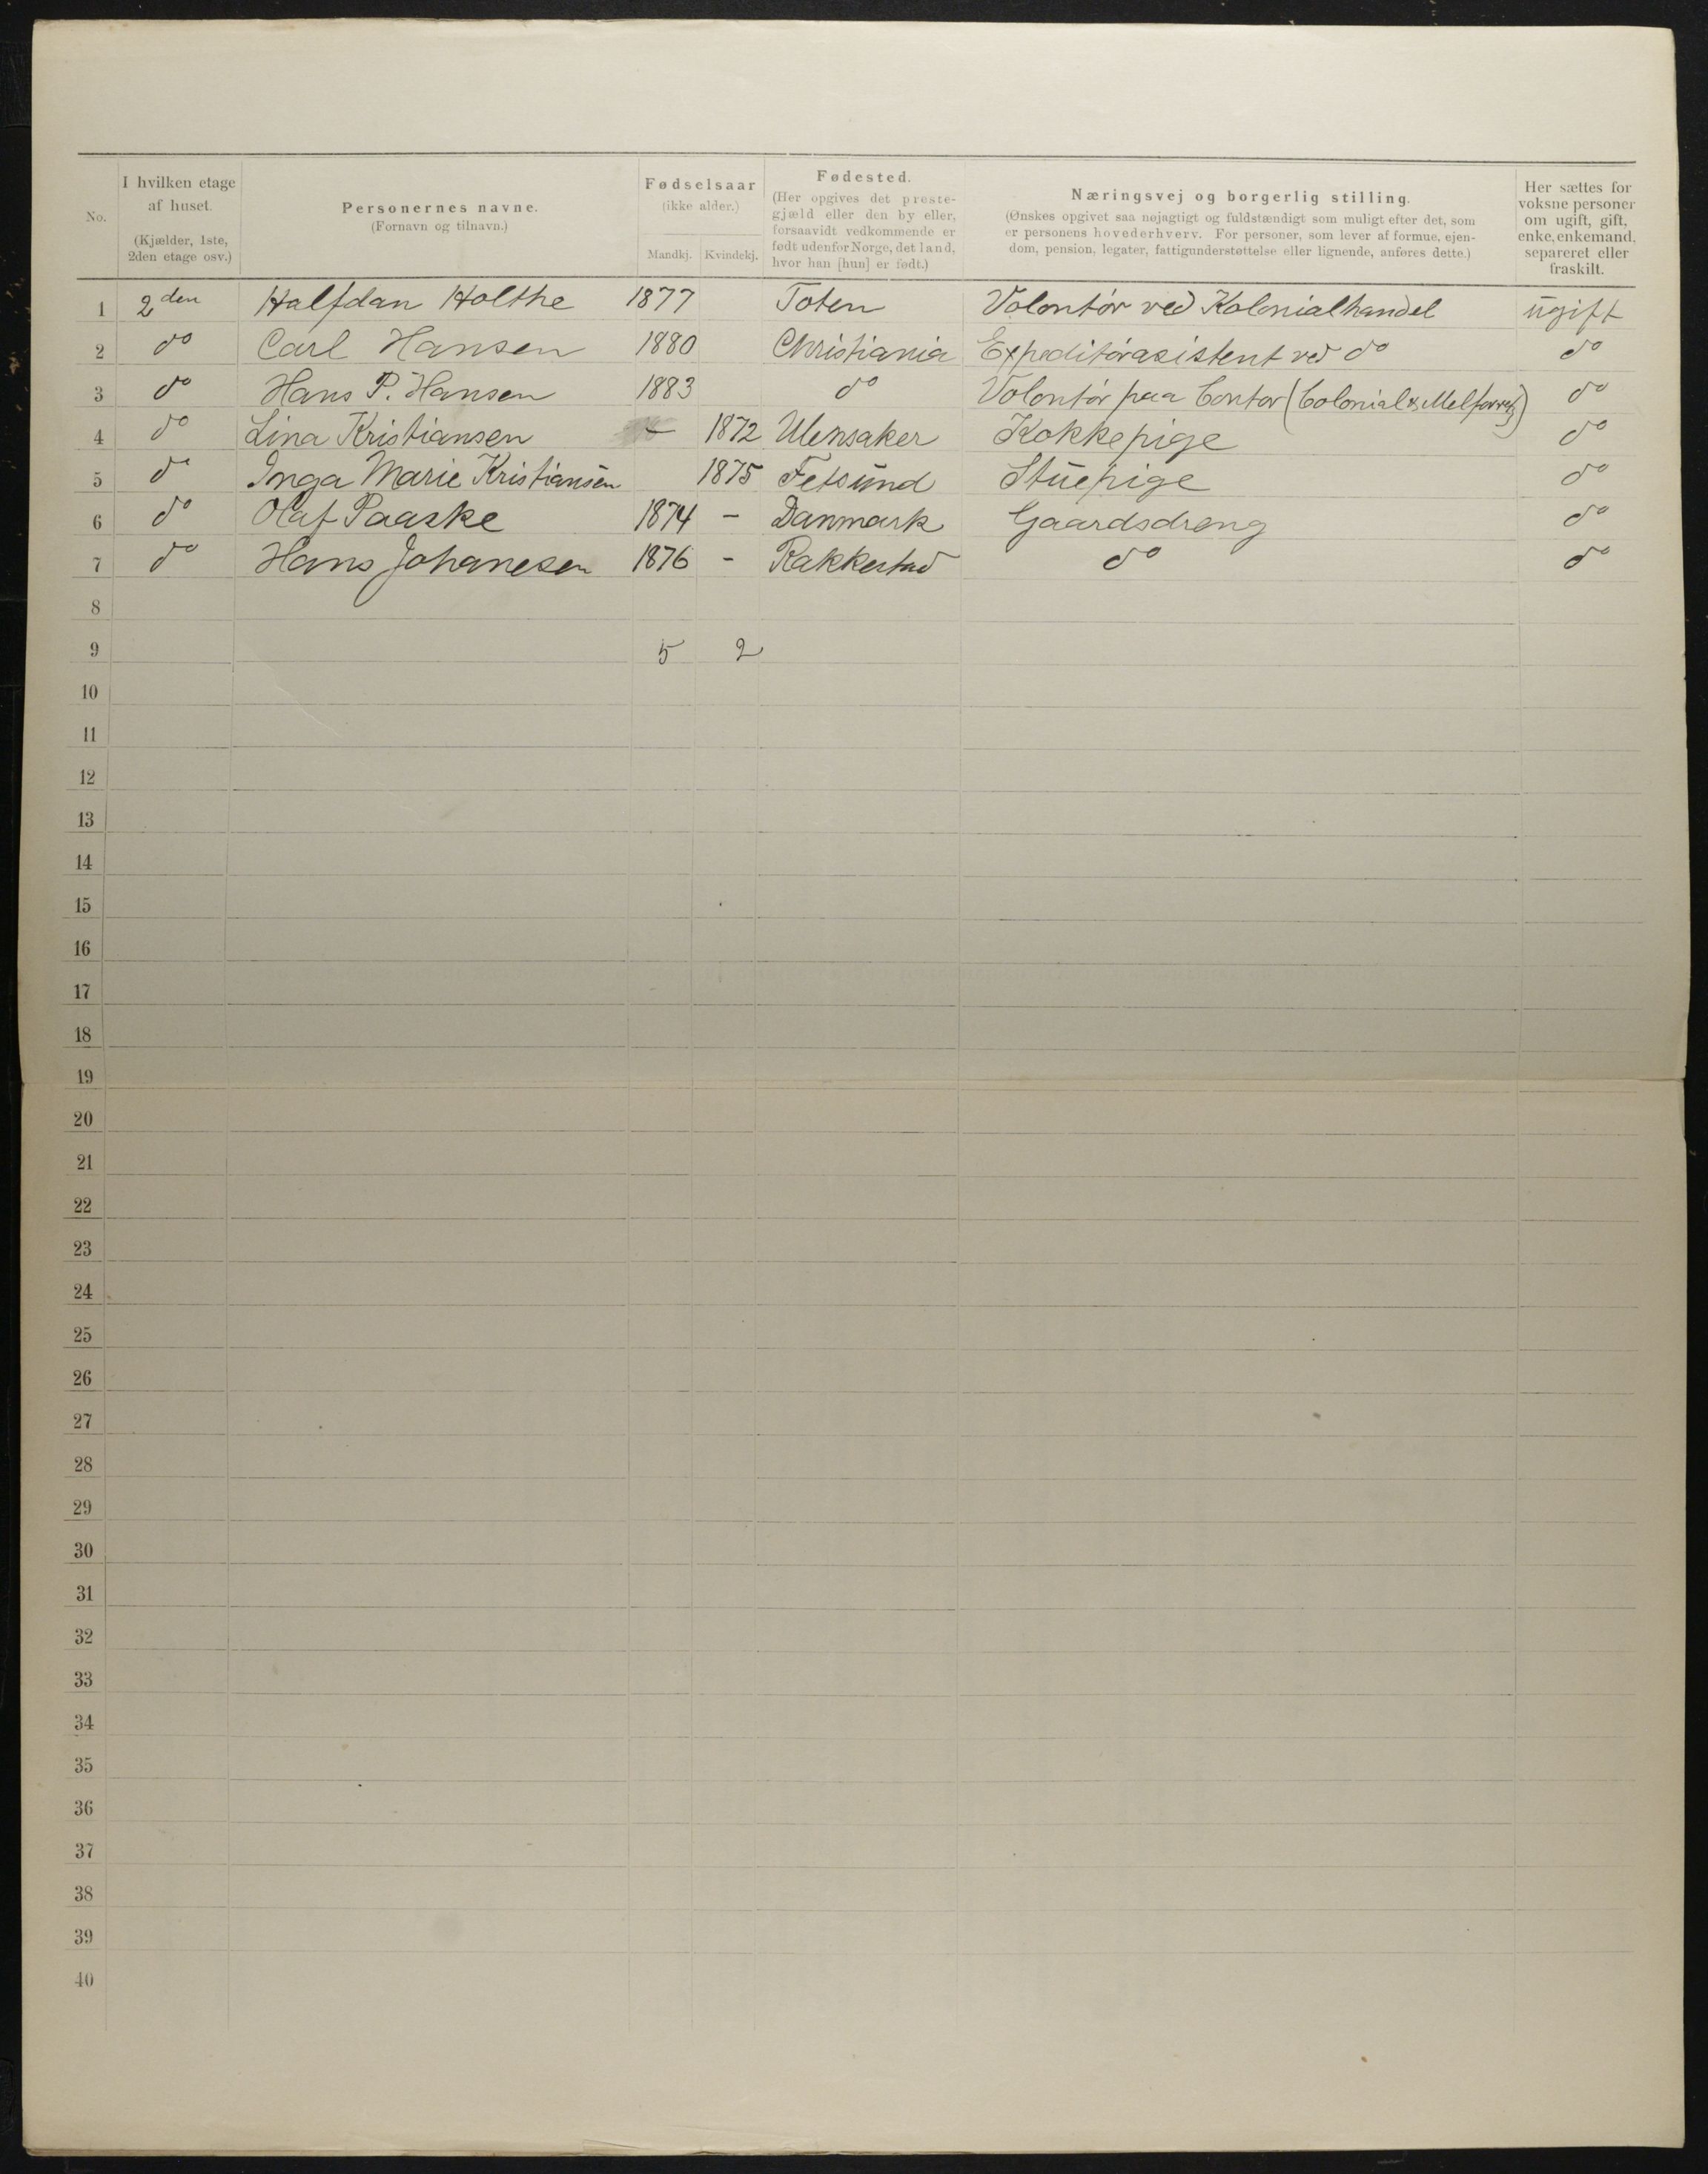 No.
I hvilken etage af huset.
(Kjælder, 1ste, 2den etage osv.)
Personernes navne.
(Fornavn og tilnavn.)
Fødselsaar
(ikke alder.)
Mandkj. Kvindekj.
Fødested.
(Her opgives det preste-
gjæld eller den by eller,
forsaavidt vedkommende er
født udenfor Norge, det land,
hvor han [hun] er født.)
Næringsvej og borgerlig stilling.
(Ønskes opgivet saa nøjagtigt og fuldstændigt som muligt efter det, som
er personens hovederhverv. For personer, som lever af formue, ejen-
dom, pension, legater, fattigunderstøttelse eller lignende, anføres dette.)
Her sættes for
voksne personer
om ugift, gift,
enke, enkemand,
separeret eller
fraskilt.
1 2den Halfdan Holthe 1877 Toten Volontør ved Kolonialhandel ugift
2 do Carl Hansen 1880 Christiania Expeditørasistent ved do do
3 do Hans P. Hansen 1883 do Volontør paa Contor (Colonial & do
4 do Lina Kristiansen – 1872 Ulensaker Kokkepige do
5 do Inga Marie Kristiansen 1875 Fetsund Stuepige do
6 do Olaf Paaske 1874 – Danmark Gaardsdreng do
7 do Hans Johanesen 1876 – Rakkestad do do
8
9 5 2
10
11
12
13
14
15
16
17
18
19
20
21
22
23
24
25
26
27
28
29
30
31
32
33
34
35
36
37
38
39
40